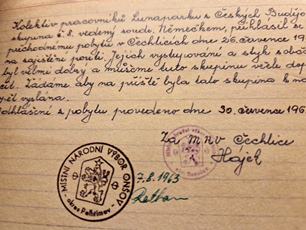 Kolektiv pracovníků Lunaparku z Českých Budějo
skupina č. 8. vedený soudr. Němečkem, přihlásil se
přechodnému pobytu v Čechticích dne 26. července 19
na zajištění pouti. Jejich vystupování a styk s obča
byl velmi dobrý a můžeme tuto skupinu vřele dop
čit. Žádáme aby na příště byla tato skupina k n
opět vyslána.
Odhlášení z pobytu provedeno dne 30. července 196
Za MNV Čechtice
Hájek
MÍSTNÍ NÁRODNÍ VÝBOR ONŠOV
okres Pelhřimov
7.8.1963